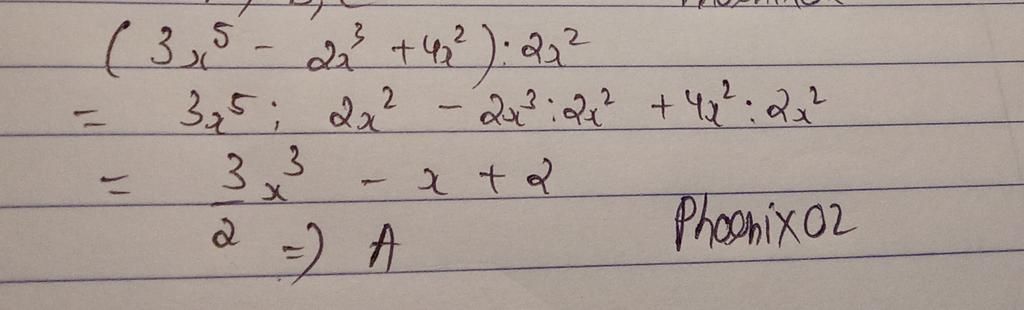 (3x⁵ - 2x³ + 4x²) : 2x²
= 3x⁵ : 2x² - 2x³ : 2x² + 4x² : 2x²
= 3/2 x³ - x + 2
=) A
PhoenixO2